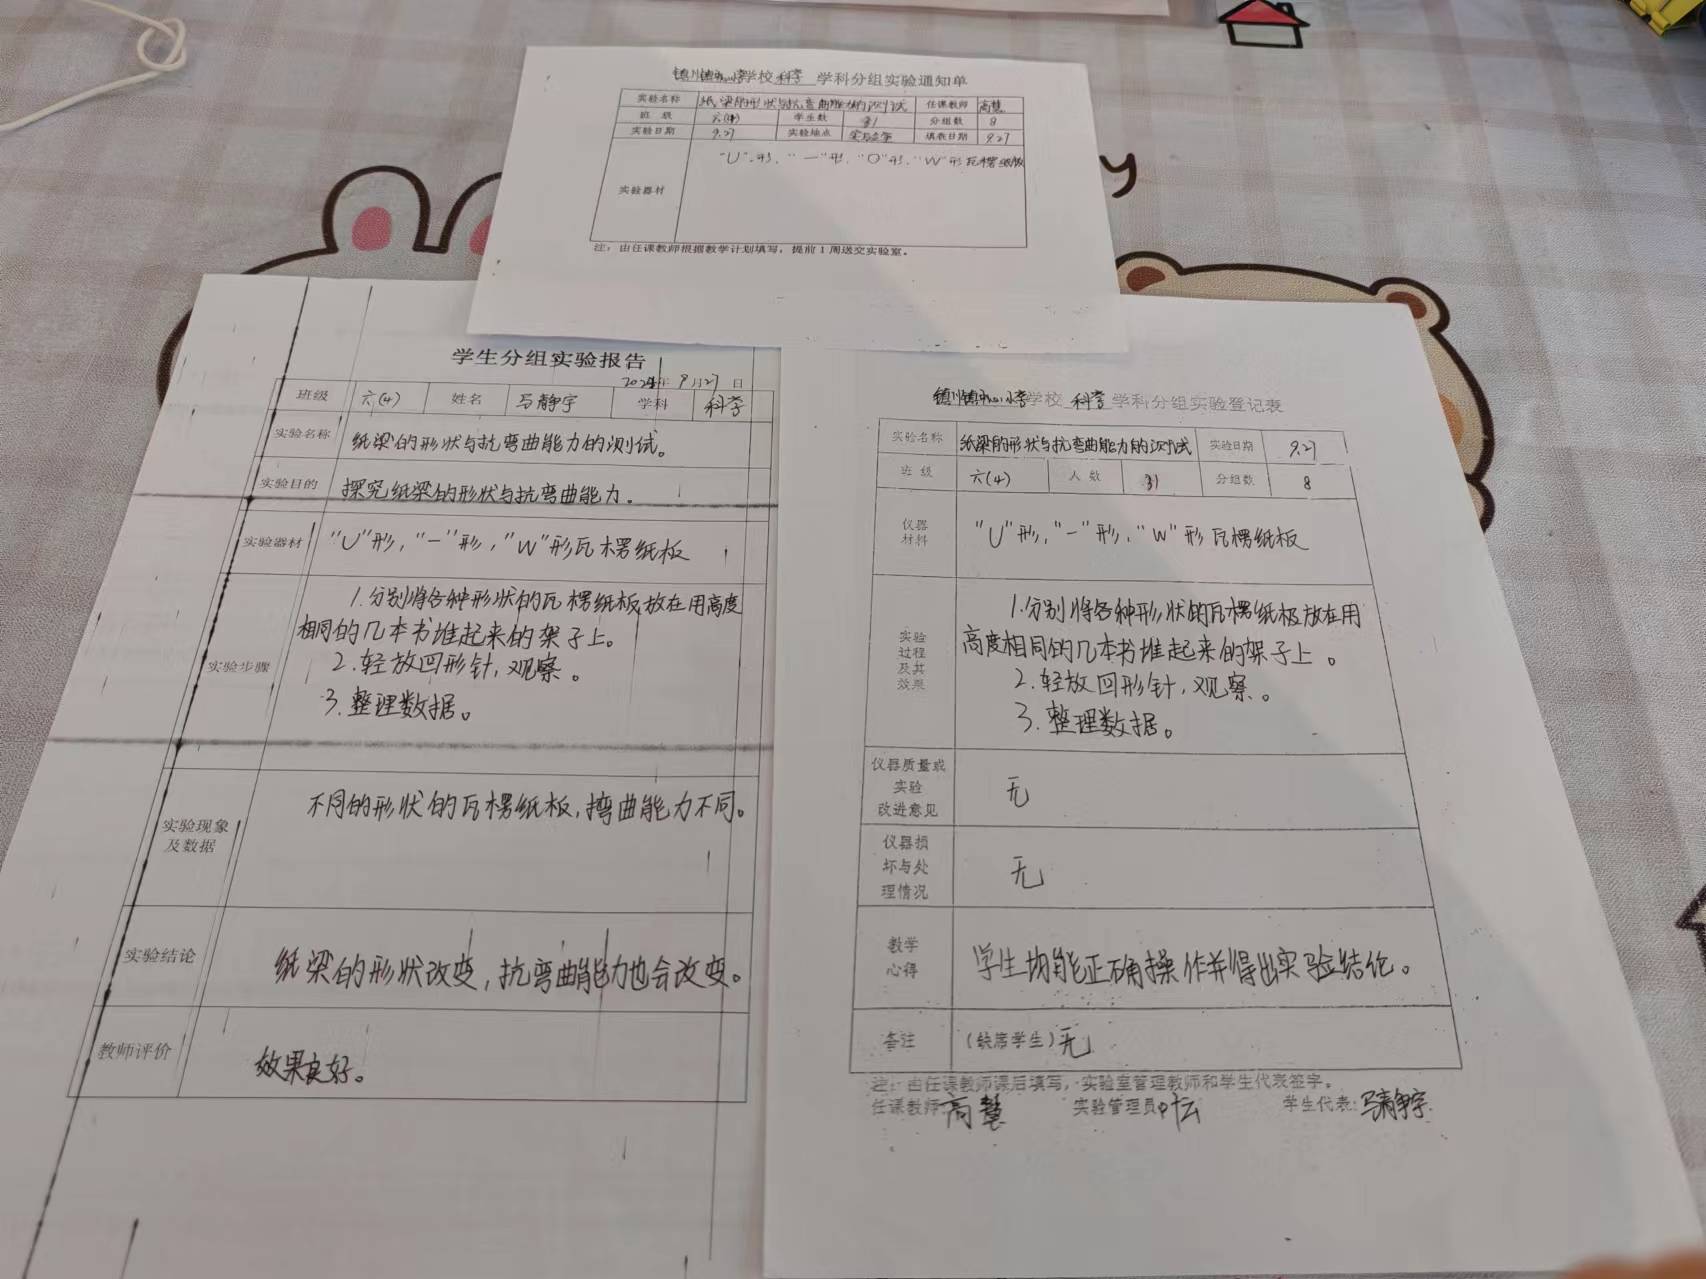 学校 科学 学科分组实验通知单
实验名称 纸梁的形状与抗弯曲能力的测试 任课教师 高慧
班 级 六(4) 学生数 31 分组数 8
实验日期 9.27 实验地点 实验室 填表日期 9.27
实验器材 "U"形,"一"形,"O"形,"W"形瓦楞纸板
注:由任课教师根据教学计划填写,提前1周送交实验室。
学生分组实验报告
2024年 9月27日
班级 六(4) 姓名 马静宇 学科 科学
实验名称 纸梁的形状与抗弯曲能力的测试。
实验目的 探究纸梁的形状与抗弯曲能力.
实验器材 "U"形,"一"形,"W"形瓦楞纸板
实验步骤
1.分别将各种形状的瓦楞纸板放在用高度
相同的几本书堆起来的架子上。
2.轻放回形针,观察。
3.整理数据。
实验现象
及数据
不同的形状的瓦楞纸板,弯曲能力不同。
实验结论 纸梁的形状改变,抗弯曲能力也会改变。
教师评价 效果良好。
学校 科学 学科分组实验登记表
实验名称 纸梁的形状与抗弯曲能力的测试 实验日期 9.27
班 级 六(4) 人 数 31 分组数 8
仪器
材料
"U"形,"一"形,"W"形瓦楞纸板
实验
过程
及其
效果
1.分别将各种形状的瓦楞纸板放在用
高度相同的几本书堆起来的架子上。
2.轻放回形针,观察。
3.整理数据。
仪器质量或
实验
改进意见
无
仪器损
坏与处
理情况
无
教学
心得
学生均能正确操作并得出实验结论。
备注 (缺席学生)无
注:由任课教师课后填写,实验室管理教师和学生代表签字。
任课教师 高慧 实验管理员 学生代表:马静宇